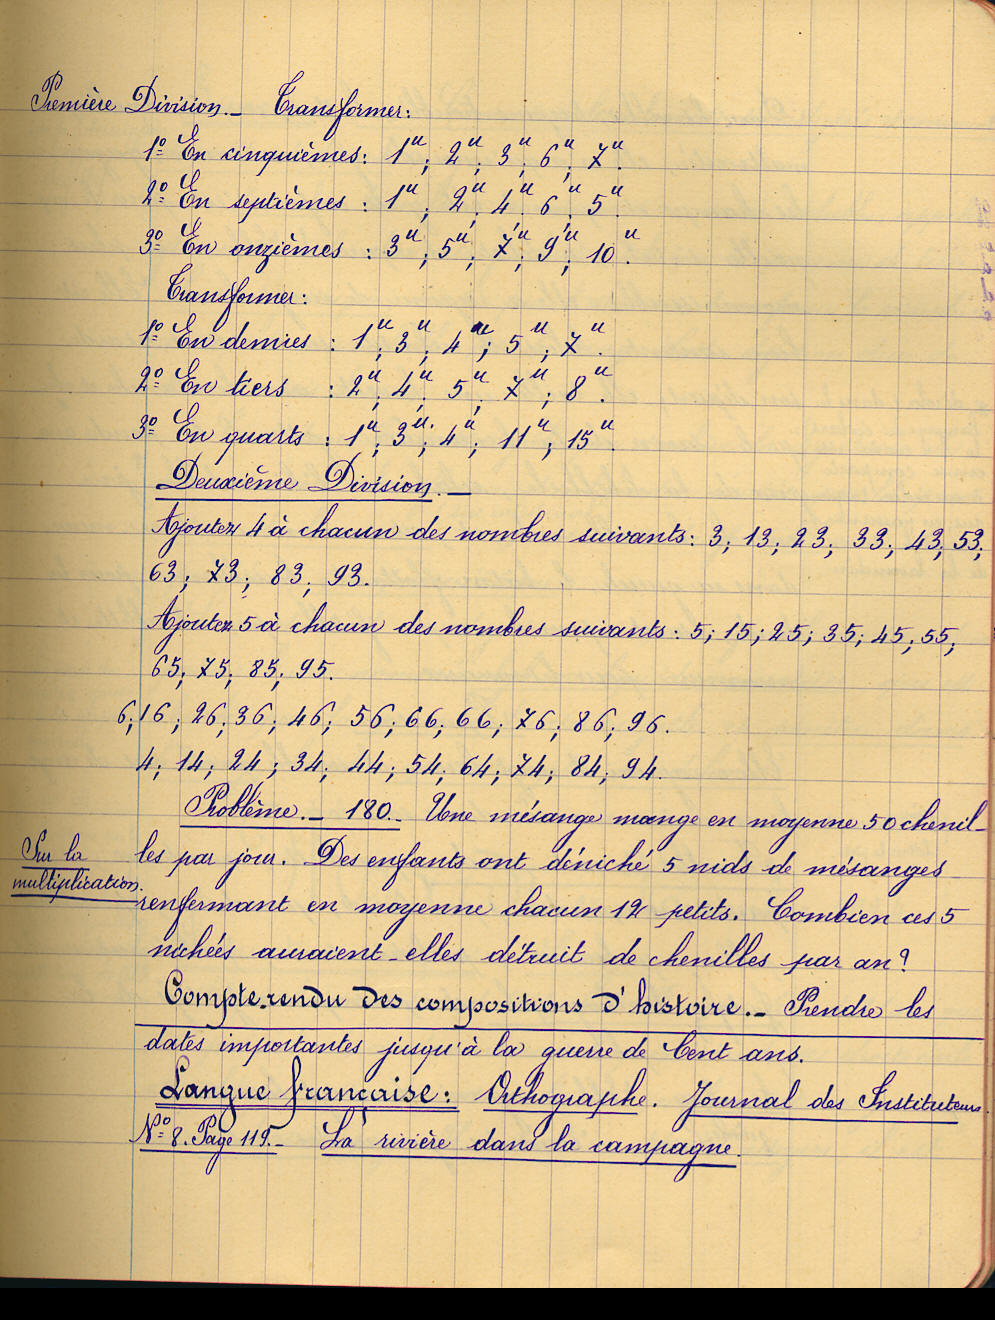 Première Division._ Transformer:
1º En cinquièmes: 1ᵘ; 2ᵘ; 3ᵘ; 6ᵘ; 7ᵘ.
2º En septièmes : 1ᵘ; 2ᵘ; 4ᵘ; 6ᵘ; 5ᵘ.
3º En onzièmes : 3ᵘ; 5ᵘ; 7ᵘ; 9ᵘ; 10ᵘ.
Transformer:
1º En demies : 1ᵘ; 3ᵘ; 4ᵘ; 5ᵘ; 7ᵘ.
2º En tiers : 2ᵘ; 4ᵘ; 5ᵘ; 7ᵘ; 8ᵘ.
3º En quarts : 1ᵘ; 3ᵘ; 4ᵘ; 11ᵘ; 15ᵘ.
Deuxième Division._
Ajoutez 4 à chacun des nombres suivants: 3; 13; 23; 33; 43; 53;
63; 73; 83; 93.
Ajoutez 5 à chacun des nombres suivants: 5; 15; 25; 35; 45; 55;
65; 75; 85; 95.
6; 16; 26; 36; 46; 56; 66; 66; 76; 86; 96.
4; 14; 24; 34; 44; 54; 64; 74; 84; 94.
Problème._ 180._ Une mésange mange en moyenne 50 chenil-
Sur la
multiplication.
les par jour. Des enfants ont déniché 5 nids de mésanges
renfermant en moyenne chacun 12 petits. Combien ces 5
nichées auraient-elles détruit de chenilles par an?
Compte-rendu des compositions d'histoire._ Prendre les
dates importantes jusqu'à la guerre de Cent ans.
Langue française: Orthographe. Journal des Instituteurs.
Nº 8. Page 119._ La rivière dans la campagne.